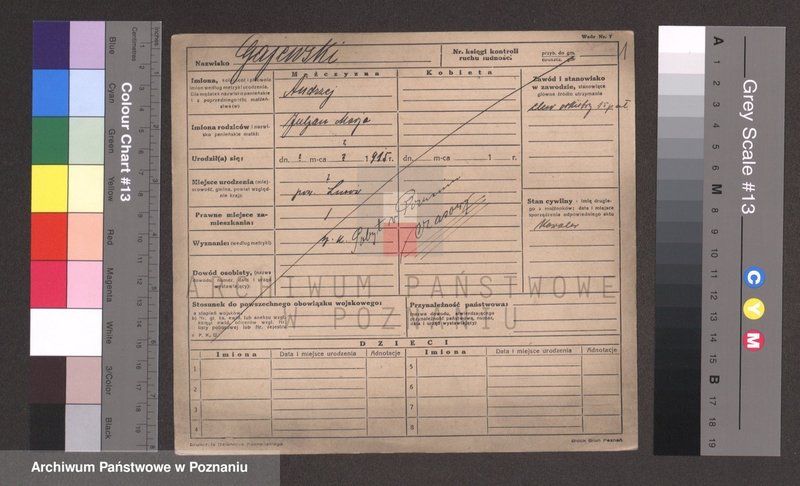 Wzór Nr. 7
Nazwisko Gajewski
Nr. księgi kontroli
ruchu ludności:
przyb. do gm.
1
Imiona,
Mężczyzna
Kobieta
Andrzej
Zawód i stanowisko
w zawodzie, stanowiące
główne źródło utrzymania
Imiona rodziców i nazwi-
sko panieńskie matki:
Juljan Marja
Urodził(a) się:
dn. ? m-ca ? 1925 r.
dn. m-ca 1 r.
Miejsce urodzenia (miej-
scowość, gmina, powiat względ-
nie kraj)
Prawne miejsce za-
mieszkania:
Stan cywilny - imię drugie-
go z małżonków; data i miejsce
sporządzenia odpowiedniego aktu
Kawaler
Wyznanie: (według metryki)
rz. k. Pobyt w Poznaniu
czasowy
Dowód osobisty, (nazwa
dowodu, numer, data i urząd
wystawiający):
ARCHIWUM PAŃSTWOWE
W POZNANIU
Stosunek do powszechnego obowiązku wojskowego:
a stopień wojskowy
Przynależność państwowa:
(nazwa dowodu, stwierdzającego
przynależność państwową, numer,
data i urząd wystawiający):
DZIECI
Imiona Data i miejsce urodzenia Adnotacje Imiona Data i miejsce urodzenia Adnotacje
1 5
2 6
3 7
4 8
Block Brun Poznań
Archiwum Państwowe w Poznaniu
Colour Chart #13
Blue
Cyan
Green
Yellow
Red
Magenta
White
3/Color
Black
Centimetres
Inches
Grey Scale #13
A
1
2
3
4
5
6
M
8
9
10
11
12
13
14
15
B
17
18
19
C
Y
M